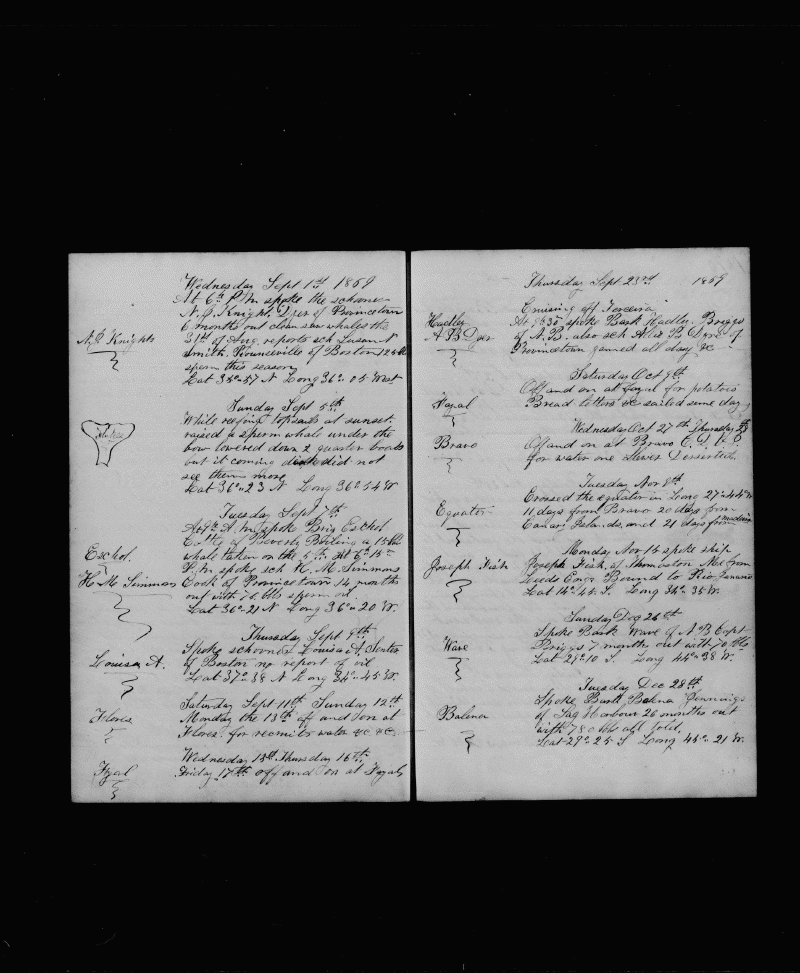 Wednesday Sept 1st 1869
At 6h P.M spoke the schooner
N. J. Knights Dyer of Provincetown
N. J. Knights
6 months out clean saw whales the
31st of Aug. reports sch Susan N
Smith, Rounseville of Boston 125 bbls
sperm this season
Lat 38° 57 N Long 36° 05 West
Sunday Sept 5th
While reefing topsails at sunset
raised a sperm whale under the
bow lowered down 2 quarter boats
but it coming dark did not
see them more
Lat 36° 23 N Long 36° 54 W
Tuesday Sept 7th
A.M spoke Brig Eschol
Eschol.
of Beverly Boiling a 15 bbl
whale taken on the 5th. At 6h 15m
P.M spoke sch H. M. Simmons
H. M Simmons
Cook of Provincetown 14 months
out with bbls sperm oil
Lat 36° 21 N Long 36° 20 W.
Thursday Sept 9th
Spoke schooner Louisa A. Senter
Louisa A.
of Boston no report of oil
Lat 37° 38 N Long 34° 45 W.
Saturday Sept 11th Sunday 12th
Monday the 13th off and on at
Flores
Flores. for recruits water &c &c
Wednesday 15th Thursday 16th
Fyal
Friday 17th off and on at Fayal
Thursday Sept 23rd 1869
Cruising off Terceira
Hadley
At spoke Bark Hadley. Briggs
A B Dyer
of N.B. also sch Alice B Dyer of
Provincetown gamed all day &c
Saturday Oct 9th
Off and on at Fayal for potatoes
Fayal
Bread letters &c sailed same day
Wednesday Oct 27th Thursday 28
Bravo
Off and on at Bravo C. D. V. D
for water one Steward Deserted
Tuesday Nov 9th
Crossed the equator in Long 27° 44 W
Equator
11 days from Bravo 20 days from
Canary Islands, and 21 days from Madeira
Monday Nov 15 spoke ship
Joseph Fish
Joseph Fish, of Thomaston Me from
Leeds Eng. Bound to Rio Janario
Lat 14° 45 S. Long 34° 35 W.
Sunday Dec 26th
Spoke Bark Wave of N B Capt
Wave
Briggs 7 months out with 70 bbls
Lat 29° 10 S. Long 44° 38 W.
Tuesday Dec 28th
Spoke Bark Balena Jennings
Balena
of Sag Harbour 26 months out
with 78 bbls all told.
Lat 29° 25 S Long 45° 21 W.